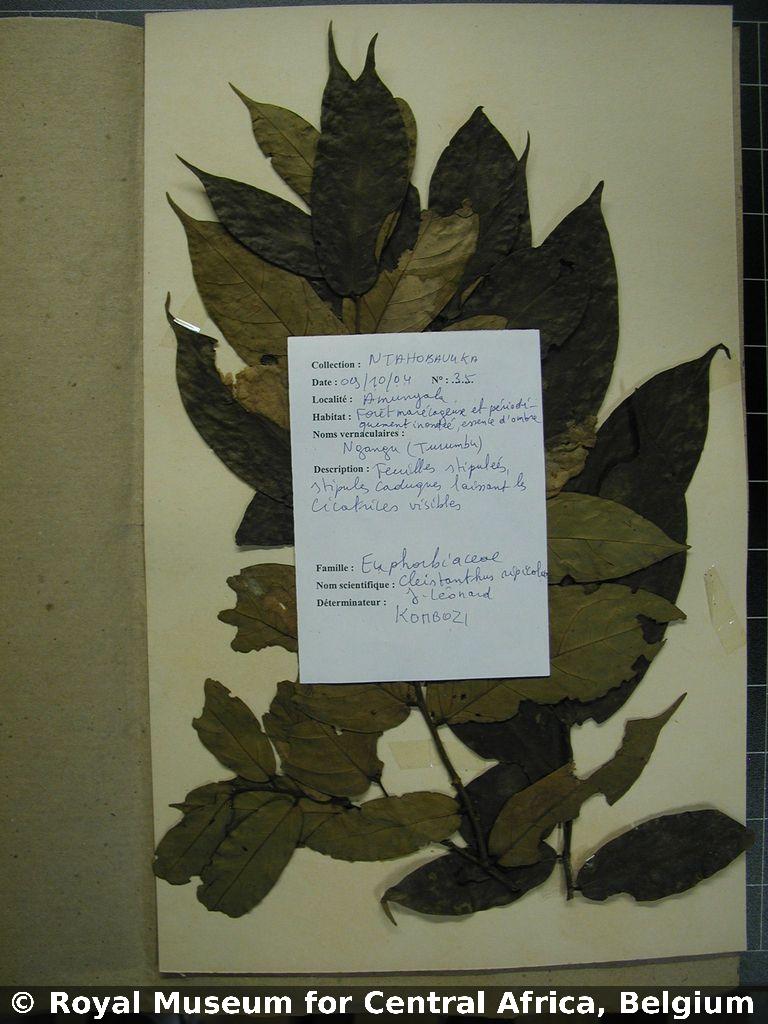 Collection : NTAHOBAVUKA
Date : 09/10/04 N° : 35.
Localité : Amunyala
Habitat : Forêt marécageuse et périodi-
quement inondée, essence d'ombre
Noms vernaculaires :
Ngangu (Turumbu)
Description : Feuilles stipulées,
stipules caduques laissant les
cicatrices visibles
Famille : Euphorbiaceae
Nom scientifique : Cleistanthus ripicola
J. Léonard
Déterminateur :
KOMBOZI
© Royal Museum for Central Africa, Belgium